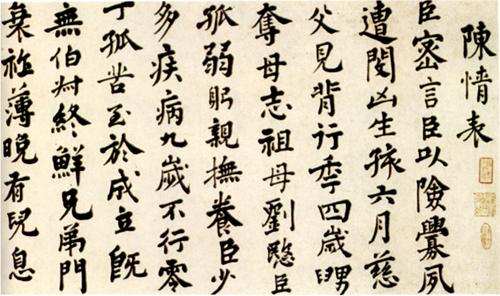 陳情表
臣密言臣以險釁夙
遭閔凶生孩六月慈
父見背行年四歲舅
奪母志祖母劉愍臣
孤弱躬親撫養臣少
多疾病九歲不行零
丁孤苦至於成立既
無伯叔終鮮兄弟門
衰祚薄晚有兒息